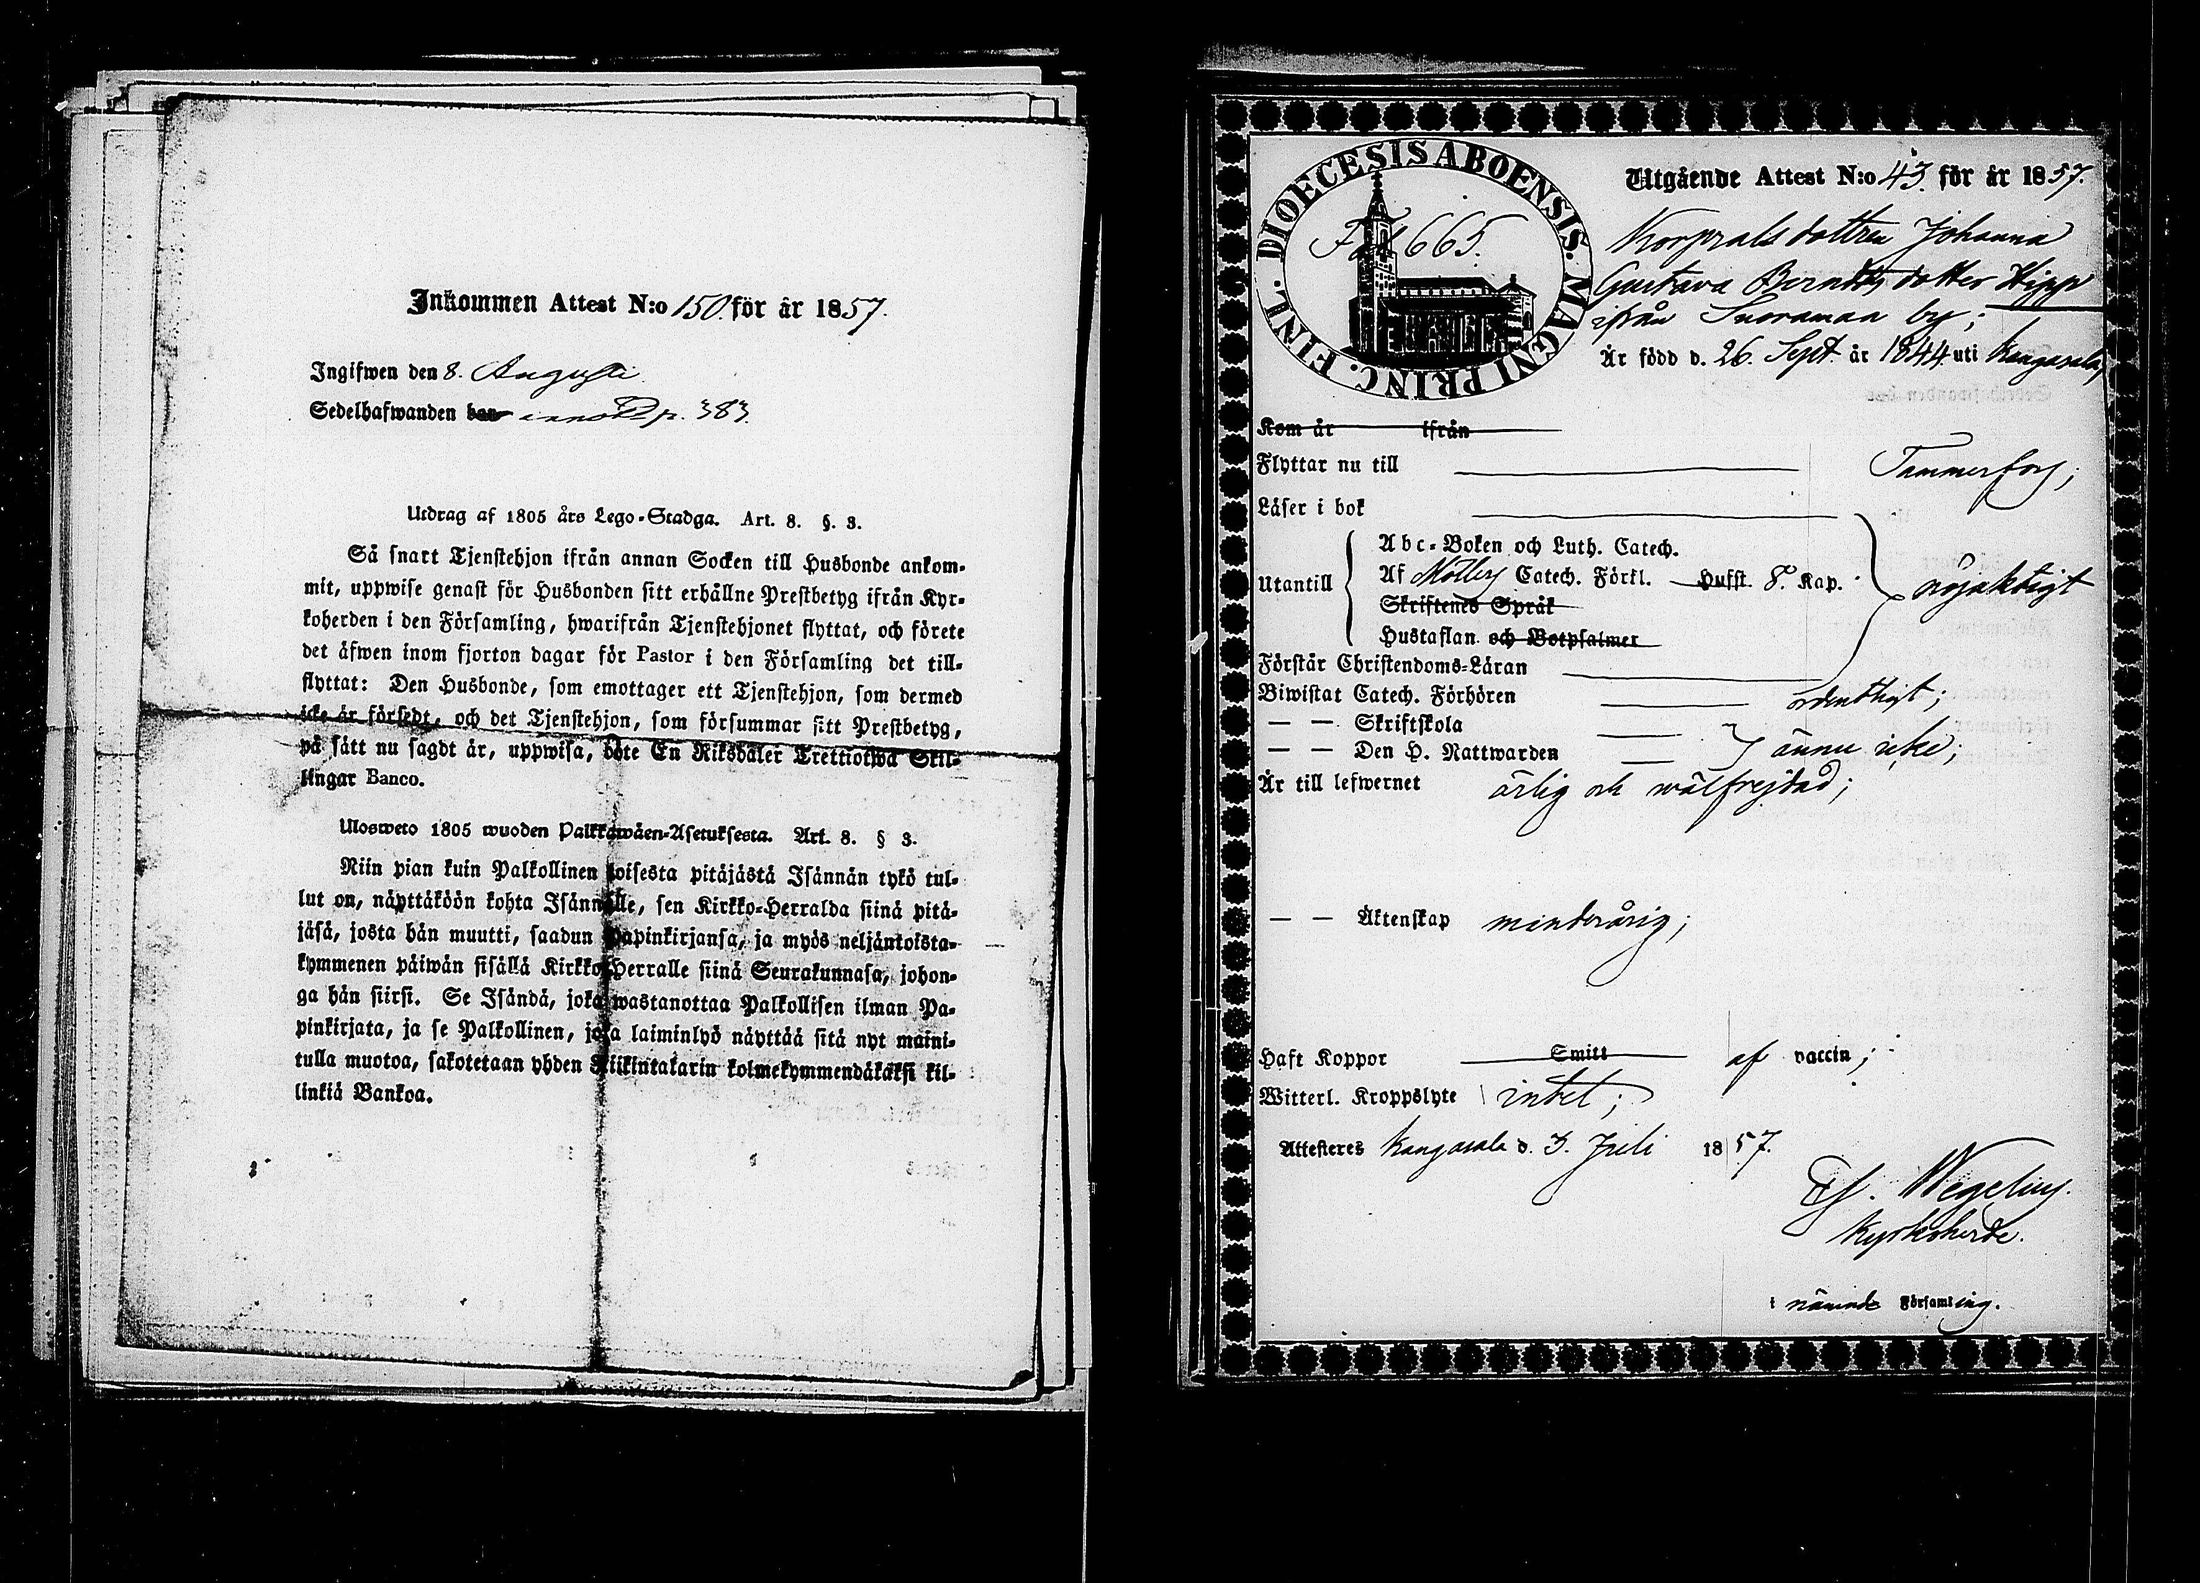 Inkommen Attest N:o 150. för år 1857.
Ingifwen den 8. Augusti
Sedelhafwanden har p. 383.
Utdrag af 1805 års Lego-Stadga. Art. 8. §. 3.
Så snart Tjenstehjon ifrån annan Socken till Husbonde ankom-
mit, uppwise genast för Husbonden sitt erhållne Prestbetyg ifrån Kyr-
koherden i den Församling, hwarifrån Tjenstehjonet flyttat, och förete
det äfwen inom fjorton dagar för Pastor i den Församling det till-
flyttat: Den Husbonde, som emottager ett Tjenstehjon, som dermed
icke är försedt, och det Tjenstehjon, som försummar sitt Prestbetyg,
på sätt nu sagdt är, uppwisa, böte En Riksdaler Trettiotwå Skil-
lingar Banco.
Ulosweto 1805 wuoden Palkkawäen-Asetuksesta. Art. 8. § 3.
Niin pian kuin Palkollinen toisesta pitäjästä Isännän tykö tul-
lut on, näyttäköön kohta Isännälle, sen Kirkko-Herralda siinä pitä-
jäsä, josta hän muutti, saadun Papinkirjansa, ja myös neljäntoista-
kymmenen päiwän sisällä Kirkko-Herralle siinä Seurakunnasa, johon-
ga hän siirsi. Se Isändä, joka wastanottaa Palkollisen ilman Pa-
pinkirjata, ja se Palkollinen, joka laiminlyö näyttää sitä nyt maini-
tulla muotoa, sakotetaan yhden Riikintalarin kolmekymmendäkaksi kil-
linkiä Bankoa.
DIOECESIS ABOENSIS. MAGNI PRINC. FINL.
Fol 665.
Utgående Attest N:o 43. för år 1857.
Korprals dottren Johanna
Gustava Berndts dotter Hipp
ifrån Suoramaa by;
Är född d. 26. Sept. år 1844 uti Kangasala,
Kom år ifrån
Flyttar nu till Tammerfors;
Läser i bok
Utantill
Abc-Boken och Luth. Catech.
Af Möllers Catech. Förkl. Hufst. 8. Kap.
Skriftenes Språk
Hustaflan och Botpsalmer
nöjaktigt
Förstår Christendoms-Läran
Biwistat Catech. Förhören ordentligt;
— — Skriftskola
— — Den H. Nattwarden ännu icke;
Är till lefwernet ärlig och wälfrejdad;
— — Äktenskap minderårig;
Haft Koppor Smitt af vaccin;
Witterl. Kroppslyte intet;
Attesteres Kangasala d. 3. Juli 1857.
Wegelius.
Kyrkoherde.
i nämnde Församling.